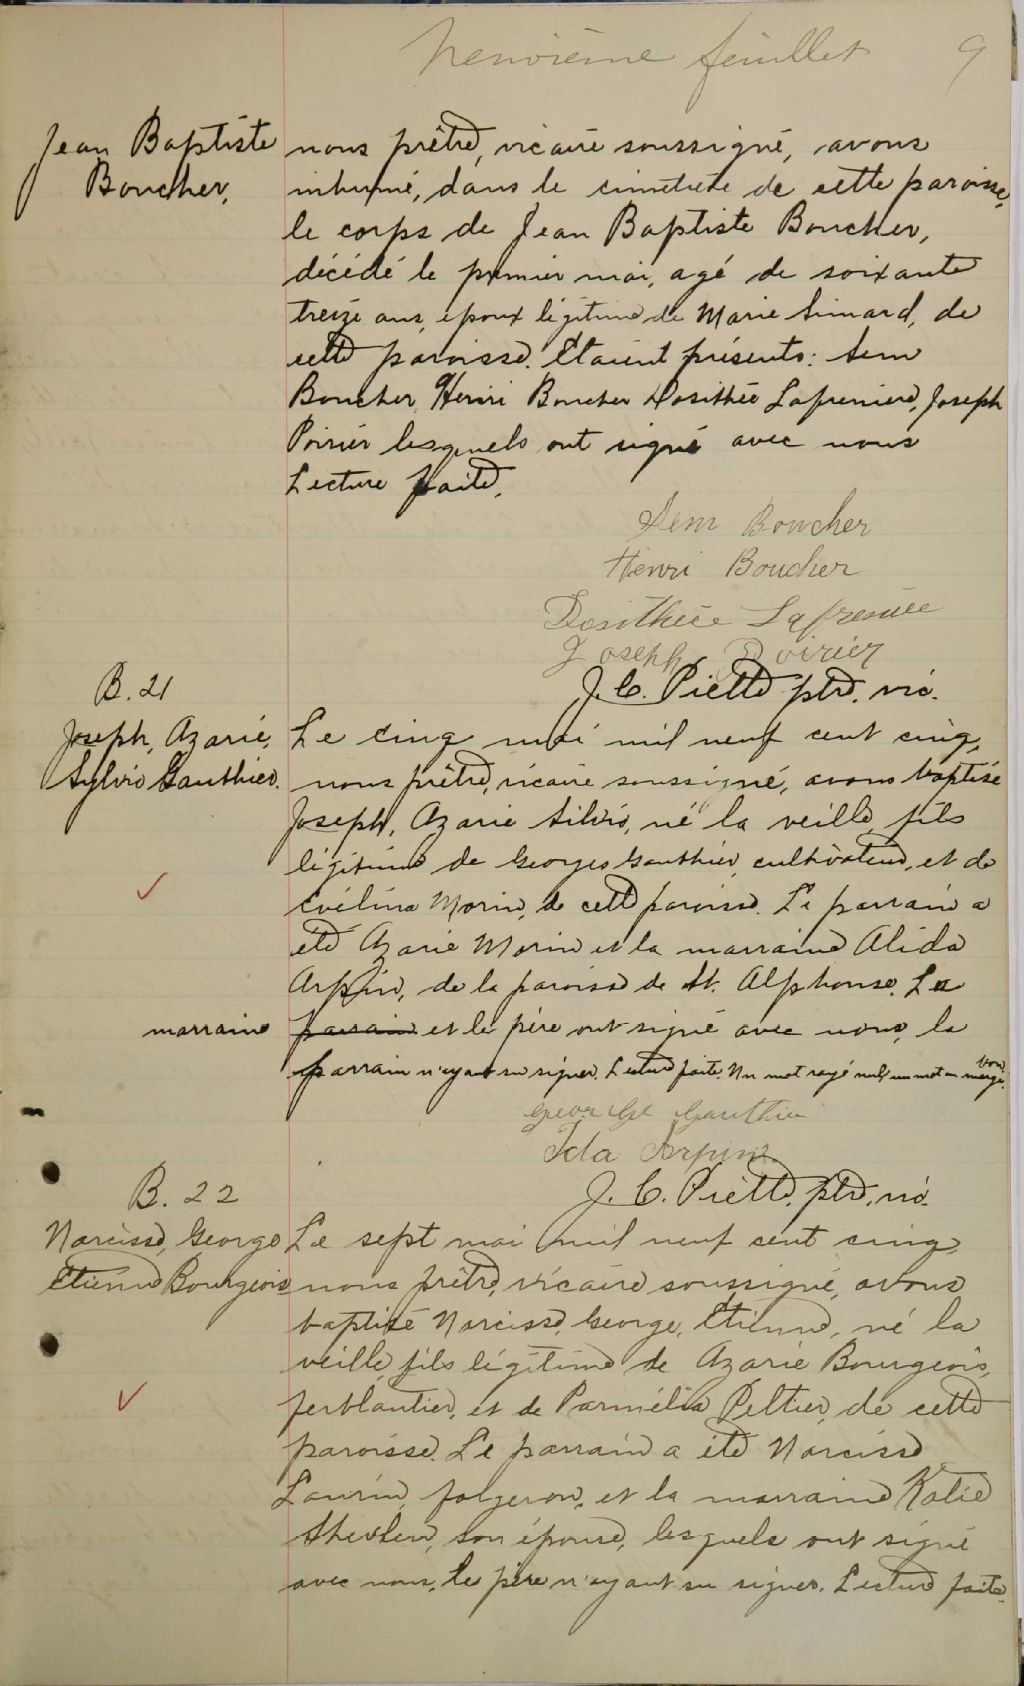 neuvième feuillet 9
Jean Baptiste
Boucher,
nous prêtre, vicaire soussigné, avons
inhumé, dans le cimetière de cette paroisse,
le corps de Jean Baptiste Boucher,
décédé le premier mai, agé de soixante
treize ans, époux légitime de Marie Simard, de
cette paroisse. Etaient présents: Sem
Boucher, Henri Boucher Dosithée Lafrenière, Joseph
Poirier lesquels ont signé avec nous
Lecture faite.
Sem Boucher
Henri Boucher
Dosithée
Joseph Poirier
J. C. Piette ptre. vic.
B. 21
Joseph, Azarie,
Sylvio Gauthier.
Le cinq mai mil neuf cent cinq,
nous prêtre, vicaire soussigné, avons baptisé
Joseph, Azarie Silvio, né la veille, fils
légitime de Georges Gauthier, cultivateur, et de
Evélina Morin, de cette paroisse. Le parrain a
été Azarie Morin et la marraine Alida
Arpin, de la paroisse de St. Alphonse. La
marraine
parrain et le père ont signé avec nous, le
parrain n'ayant su signer. Lecture faite. Un mot rayé nul, un mot en marge bon.
George Gauthier
Ida Arpin
J. C. Piette, ptre, vic.
B. 22
Narcisse, George
Etienne Bourgeois
Le sept mai mil neuf cent cinq,
nous prêtre, vicaire soussigné, avons
baptisé Narcisse, George, Etienne, né la
veille, fils légitime de Azarie Bourgeois,
ferblantier, et de Parmélia Peltier, de cette
paroisse. Le parrain a été Narcisse
Laurin, forgeron, et la marraine Katie
son épouse, lesquels ont signé
avec nous, le père n'ayant su signer. Lecture faite.